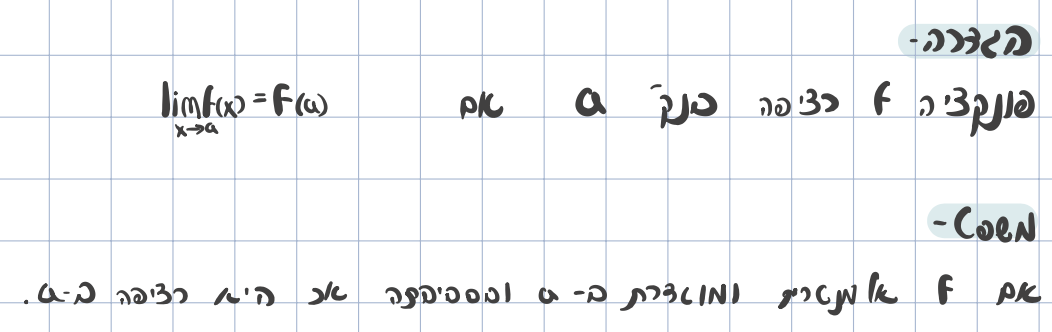 הגדרה-
פונקציה f רציפה בנק' a אם lim f(x) = f(a)
x→a
משפט-
אם f אלמנטרית ומוגדרת ב- a ובסביבתה אז היא רציפה ב-a.